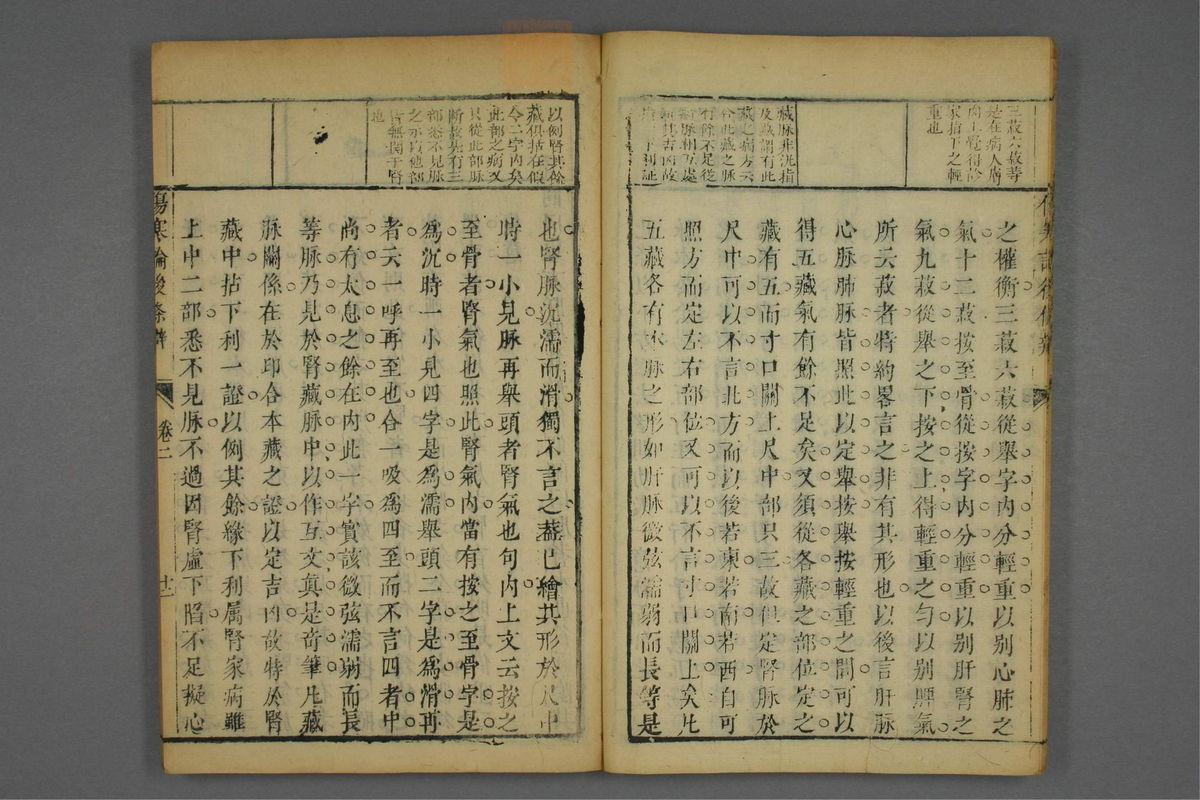 三菽六菽等
是在病人膚
肉上覺得診
家指下之輕
重也
藏脉非沉指
及藏謂有此
藏之病方云
合此藏之脉
有餘不足從
脉相互處
其吉凶故
下利証
之權衡三菽六菽從舉字內分輕重以別心肺之
氣十二菽按至骨從按字內分輕重以別肝腎之
氣九菽從舉之下按之上得輕重之勻以別脾氣
所云菽者特約畧言之非有其形也以後言肝脉
心脉肺脉皆照此以定舉按舉按輕重之間可以
得五藏氣有餘不足矣又須從各藏之部位定之
藏有五而寸口關上尺中部只三故但定腎脉於
尺中可以不言北方而以後若東若南若西自可
照方而定左右部位又可以不言寸口關上矣凡
五藏各有本脉之形如肝脉微弦濡弱而長等是
以例腎其餘
藏俱括在假
令二字內矣
此部之病又
只從此部脉
斷故其有三
部悉不見脉
之亦以他部
皆無關于腎
也
也腎脉沉濡而滑獨不言之葢已繪其形於尺中
時一小見脉再舉頭者腎氣也句內上文云按之
至骨者腎氣也照此腎氣內當有按之至骨字是
爲沉時一小見四字是爲濡舉頭二字是爲滑再
者云一呼再至也合一吸爲四至而不言四者中
尚有太息之餘在內此一字實該微弦濡弱而長
等脉乃見於腎藏脉中以作互文真是奇筆凡藏
脉關係在於印合本藏之證以定吉凶故特於腎
藏中拈下利一證以例其餘緣下利属腎家病雖
上中二部悉不見脉不過因腎虛下陷不足擬心
傷寒論後條辨
卷二
十二